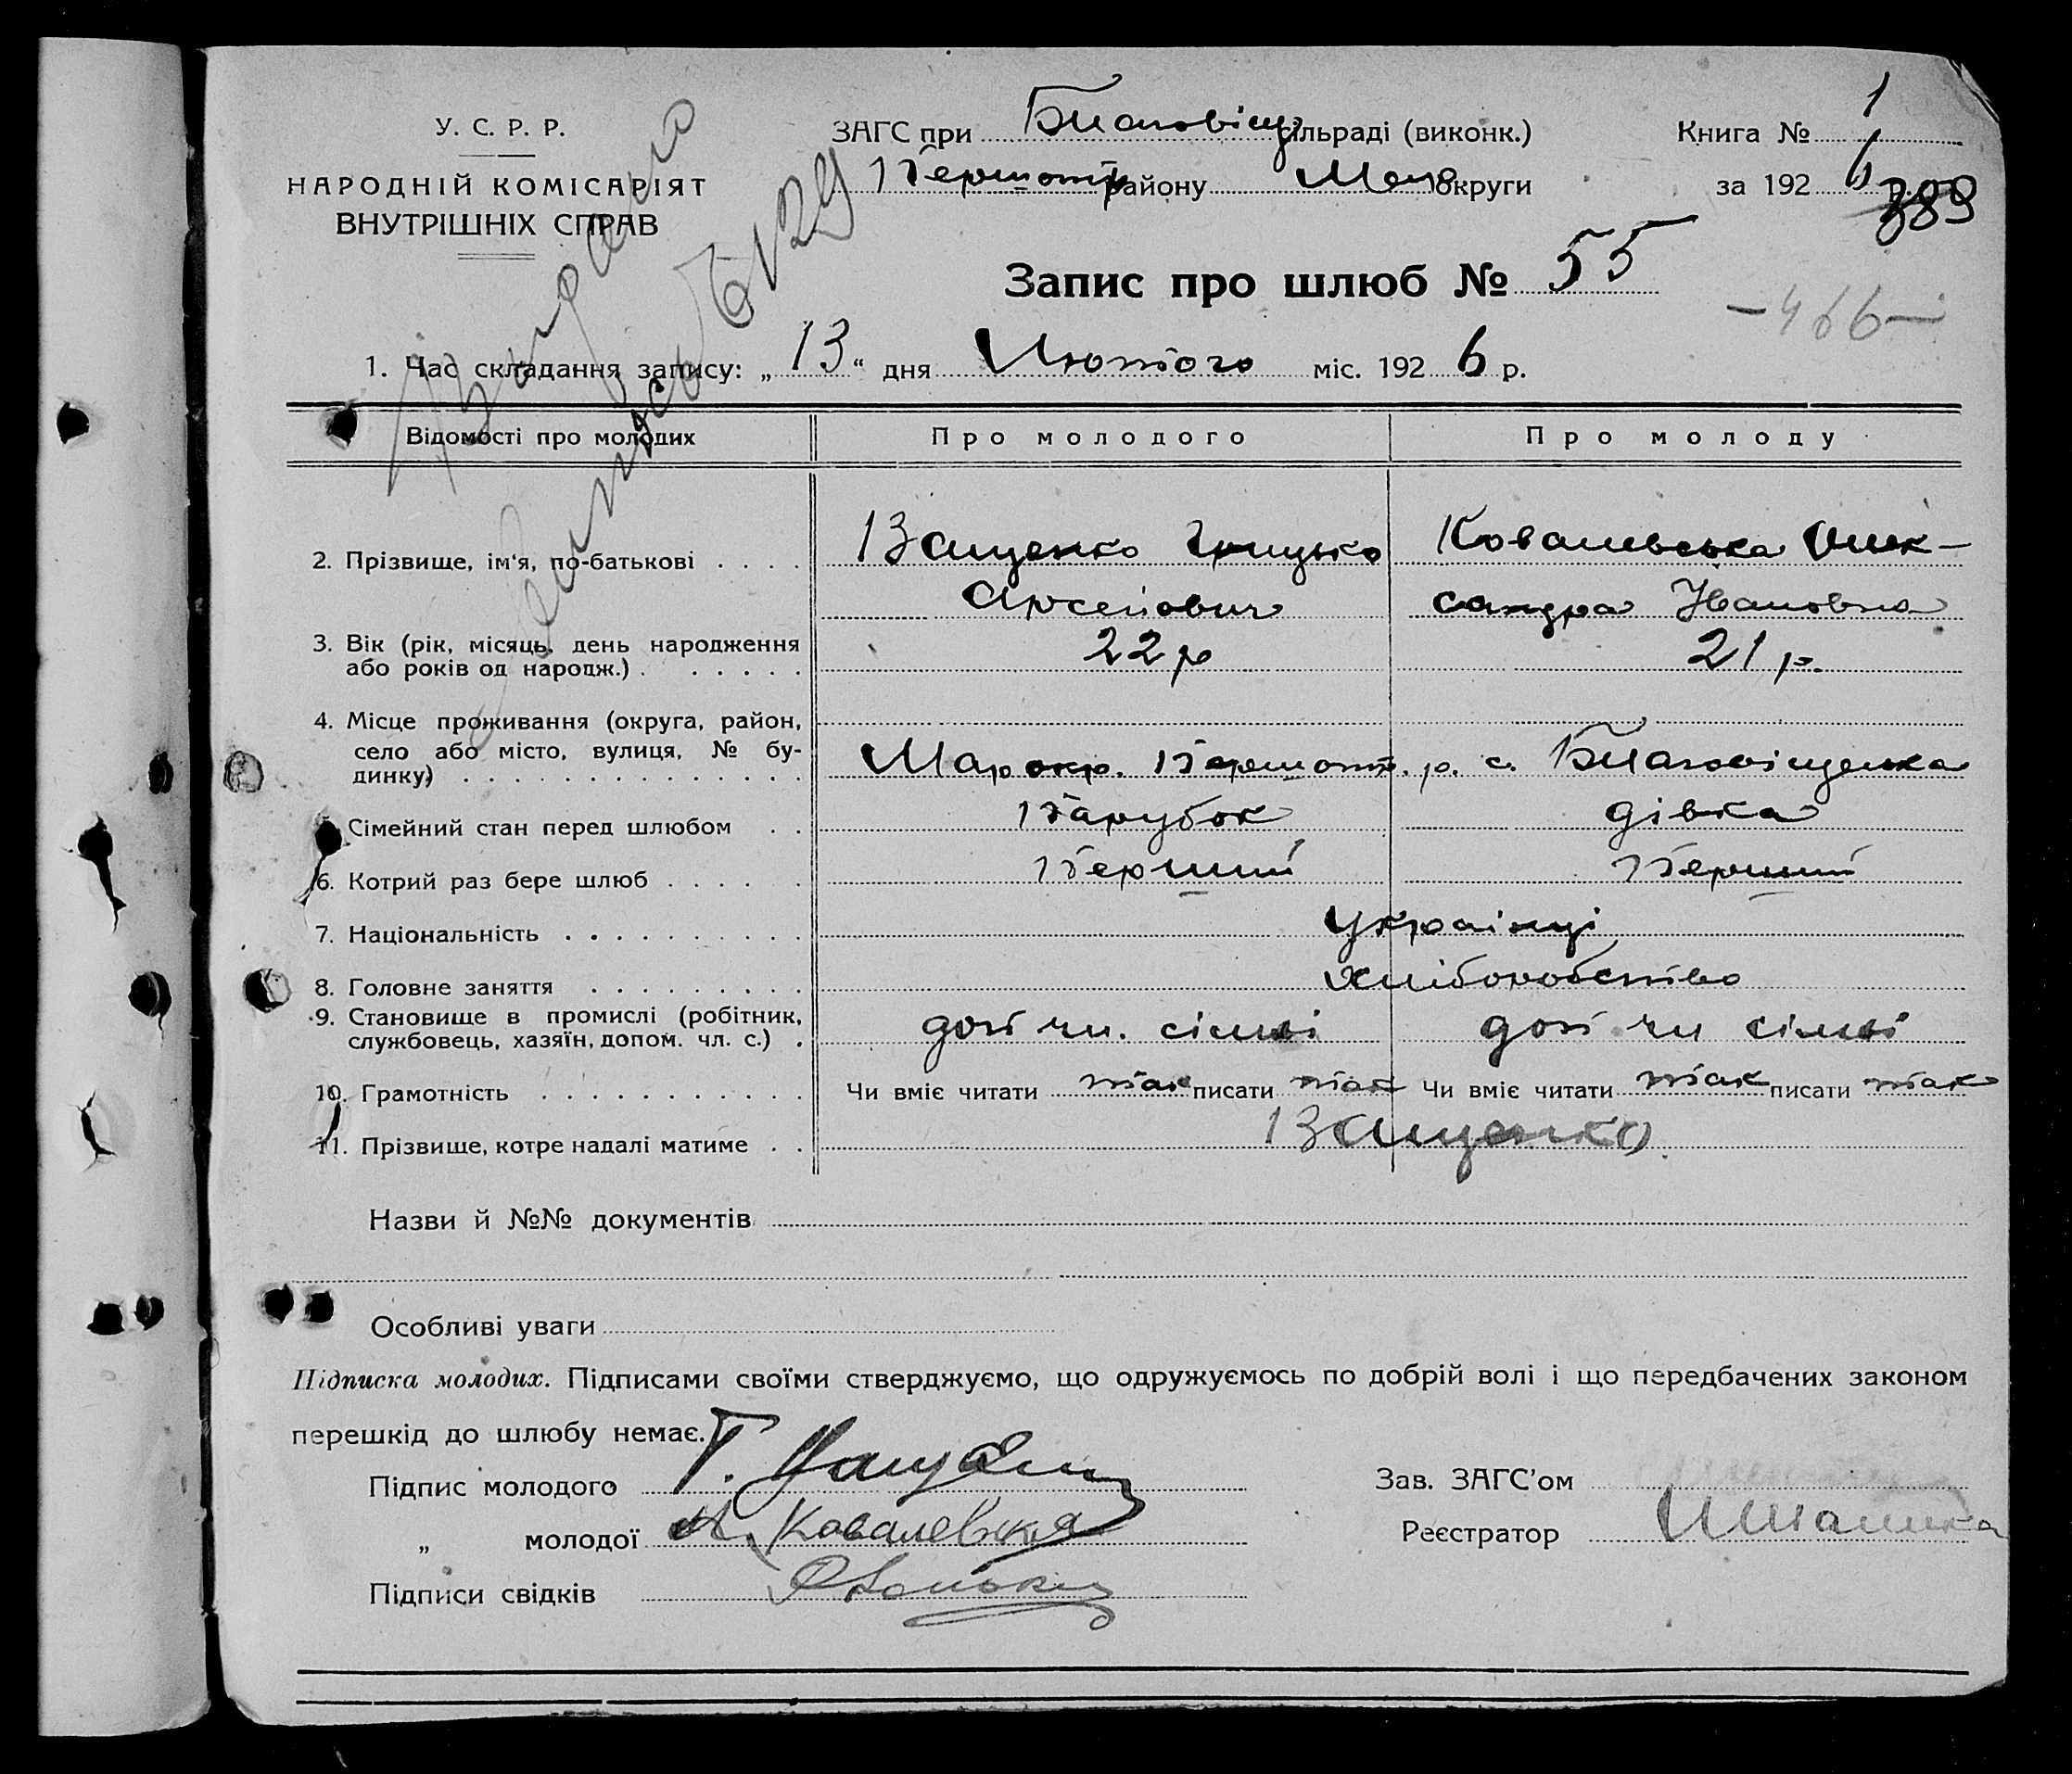 У. С. Р. Р.
НАРОДНІЙ КОМІСАРІЯТ
ВНУТРІШНІХ СПРАВ
ЗАГС при Благовіщ сільраді (виконк.)
Першотр району Мар округи
Книга № 1
за 1926 р.
389
Запис про шлюб № 55
-466-
1. Час складання запису: „13“ дня Лютого міс. 1926 р.
Відомості про молодих Про молодого Про молоду
2. Прізвище, ім'я, по-батькові . . . . Ващенко Грицько Ковалевська Олек-
Арсенович сандра Івановна
3. Вік (рік, місяць, день народження
або років од народж.) . . . . . . 22 р 21 р.
4. Місце проживання (округа, район,
село або місто, вулиця, № бу-
динку) . . . . . . . . . . . . . . Мар окр. Першотр. р. с. Благовіщенька
5. Сімейний стан перед шлюбом . . Парубок дівка
6. Котрий раз бере шлюб . . . . . Перший Перший
7. Національність . . . . . . . . . . Українці
8. Головне заняття . . . . . . . . . Хліборобство
9. Становище в промислі (робітник,
службовець, хазяїн, допом. чл. с.) . доп чл. сімьі доп чл сімьі
10. Грамотність . . . . . . . . . . . . Чи вміє читати так писати так Чи вміє читати так писати так
11. Прізвище, котре надалі матиме . . Ващенко
Назви й №№ документів
Особливі уваги
Підписка молодих. Підписами своїми стверджуємо, що одружуємось по добрій волі і що передбачених законом
перешкід до шлюбу немає.
Підпис молодого Г. Ващенк
„ молодої А. Ковалевська
Підписи свідків
Зав. ЗАГС'ом
Реєстратор